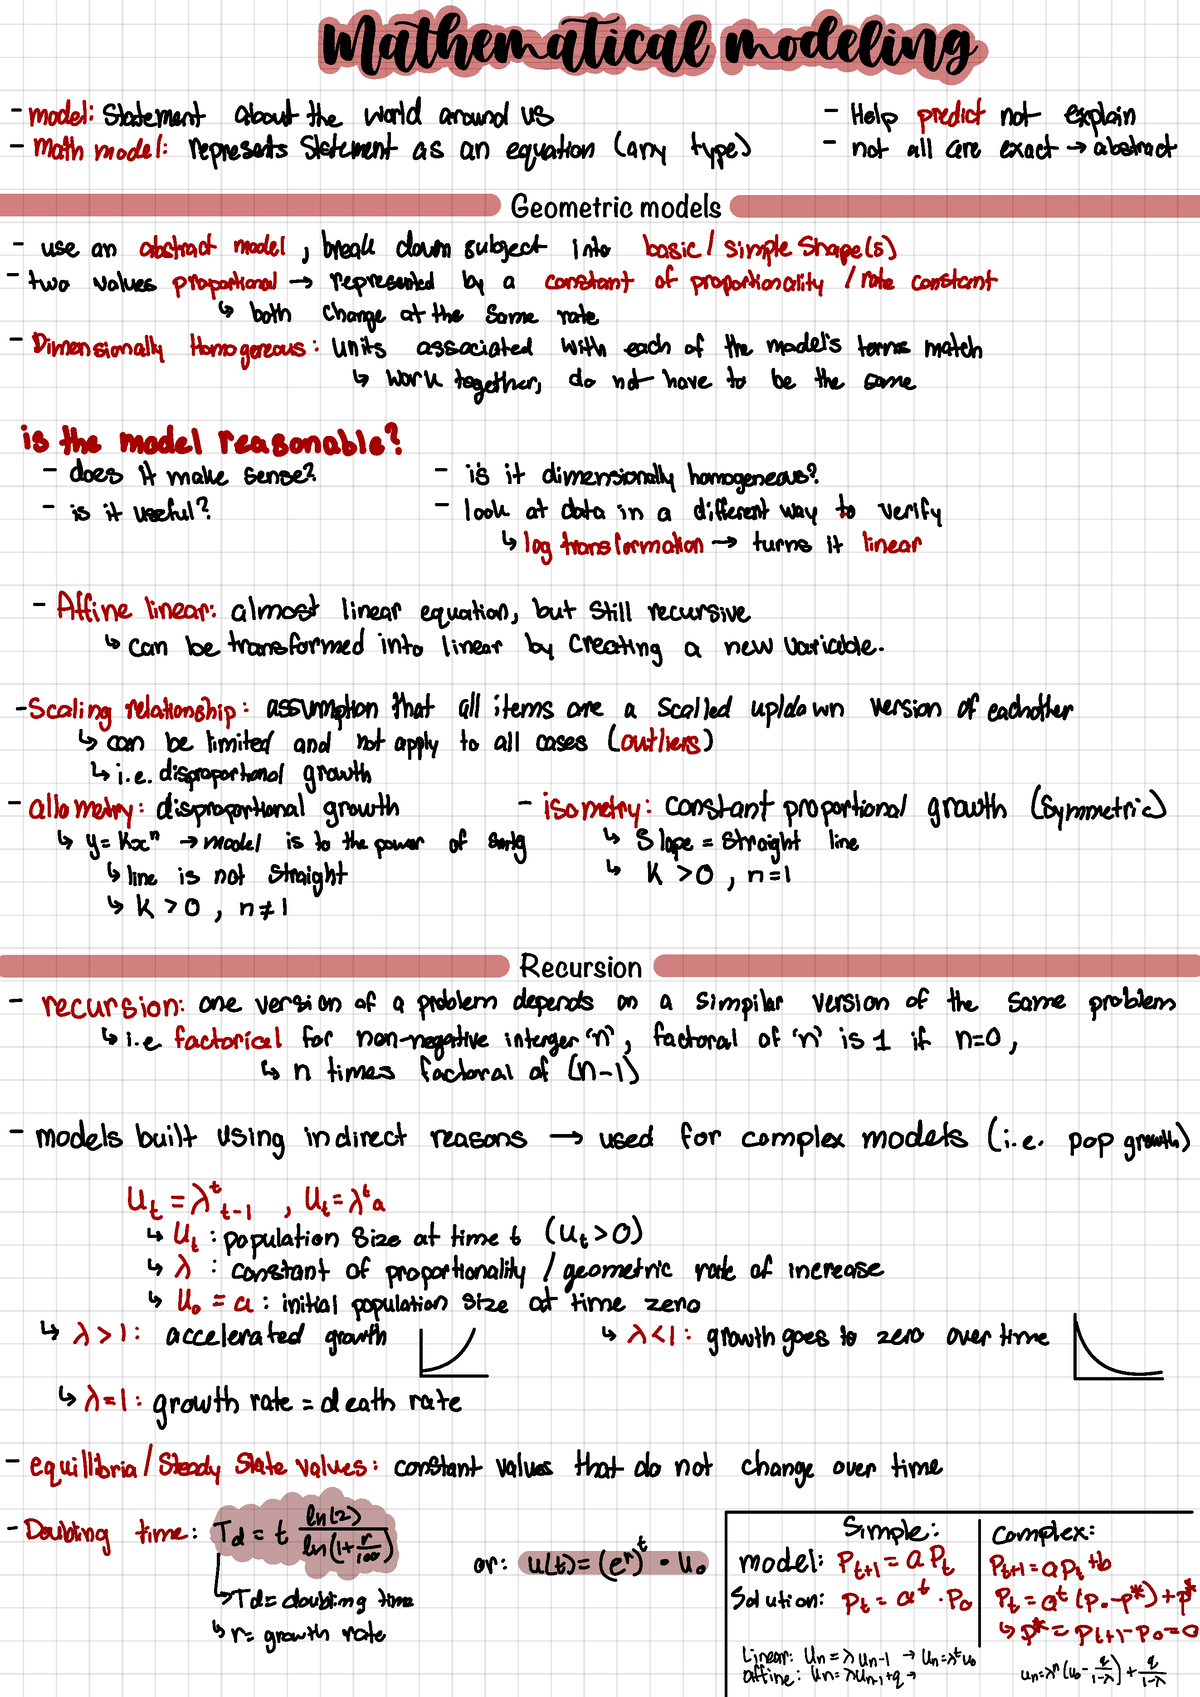 Mathematical modeling
- model: Statement about the world around us
- Help predict not explain
- math model: represents Statement as an equation (any type)
- not all are exact → abstract
Geometric models
- use an abstract model, break down subject into basic / simple Shape(s)
- two values proportional → represented by a constant of proportionality / rate constant
↳ both change at the same rate
- Dimensionally Homogereous: units associated with each of the model's terms match
↳ work together, do not have to be the same
is the model reasonable?
- does it make sense?
- is it dimensionally homogeneous?
- is it useful?
- look at data in a different way to verify
↳ log transformation → turns it linear
- Affine linear: almost linear equation, but still recursive
↳ can be transformed into linear by creating a new variable.
- Scaling relationship: assumption that all items are a scalled up/down version of eachother
↳ can be limited and not apply to all cases (outliers)
↳ i.e. disproportional growth
- allometry: disproportional growth
- isometry: constant proportional growth (symmetric)
↳ y = kxⁿ → model is to the power of
↳ Slope = straight line
↳ line is not straight
↳ k > 0, n = 1
↳ k > 0, n ≠ 1
Recursion
- recursion: one version of a problem depends on a simpilar version of the same problem
↳ i.e factorical for non-negative interger 'n', factoral of 'n' is 1 if n=0,
↳ n times factoral of (n-1)
- models built using indirect reasons → used for complex models (i.e. pop growth)
U_t = λ^t_{t-1} , U_t = λ^t a
↳ U_t : population size at time t (U_t > 0)
↳ λ : constant of proportionality / geometric rate of increase
↳ U₀ = a : initial population size at time zero
↳ λ > 1: accelerated growth
↳ λ < 1: growth goes to zero over time
↳ λ = 1: growth rate = death rate
- equillibria / Steady State values: constant values that do not change over time
- Doubling time: Td = t ln(2) / ln(1 + r/100)
↳ Td = doubling time
↳ r = growth rate
or: u(t) = (e^r)^t · u₀
Simple: Complex:
model: P_{t+1} = a P_t P_{t+1} = a P_t + b
Solution: P_t = a^t · P₀ P_t = a^t (P₀ - P*) + P*
↳ P* = P_{t+1} - P₀ = 0
Linear: Un = λ u_{n-1} → Un = λ^t u₀
affine: Un = λU_{n-1} + q → Un = λⁿ (u₀ - q/(1-λ)) + q/(1-λ)